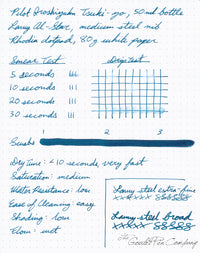 Pilot Iroshizuku Tsuki-yo, 50ml bottle
Lamy Al-Star, medium steel nib
Rhodia dotpad, 80g white paper
Smear Test
Drip Test
5 seconds
10 seconds
20 seconds
30 seconds
1 2 3
Swabs
Dry Time: <10 seconds very fast
Saturation: medium
Water Resistance: low
Ease of Cleaning: easy
Shading: low
Flow: wet
Lamy steel extra-fine
xxxxxxx 888888
Lamy steel broad
xxxxxx 888888
the Goulet Pen Company